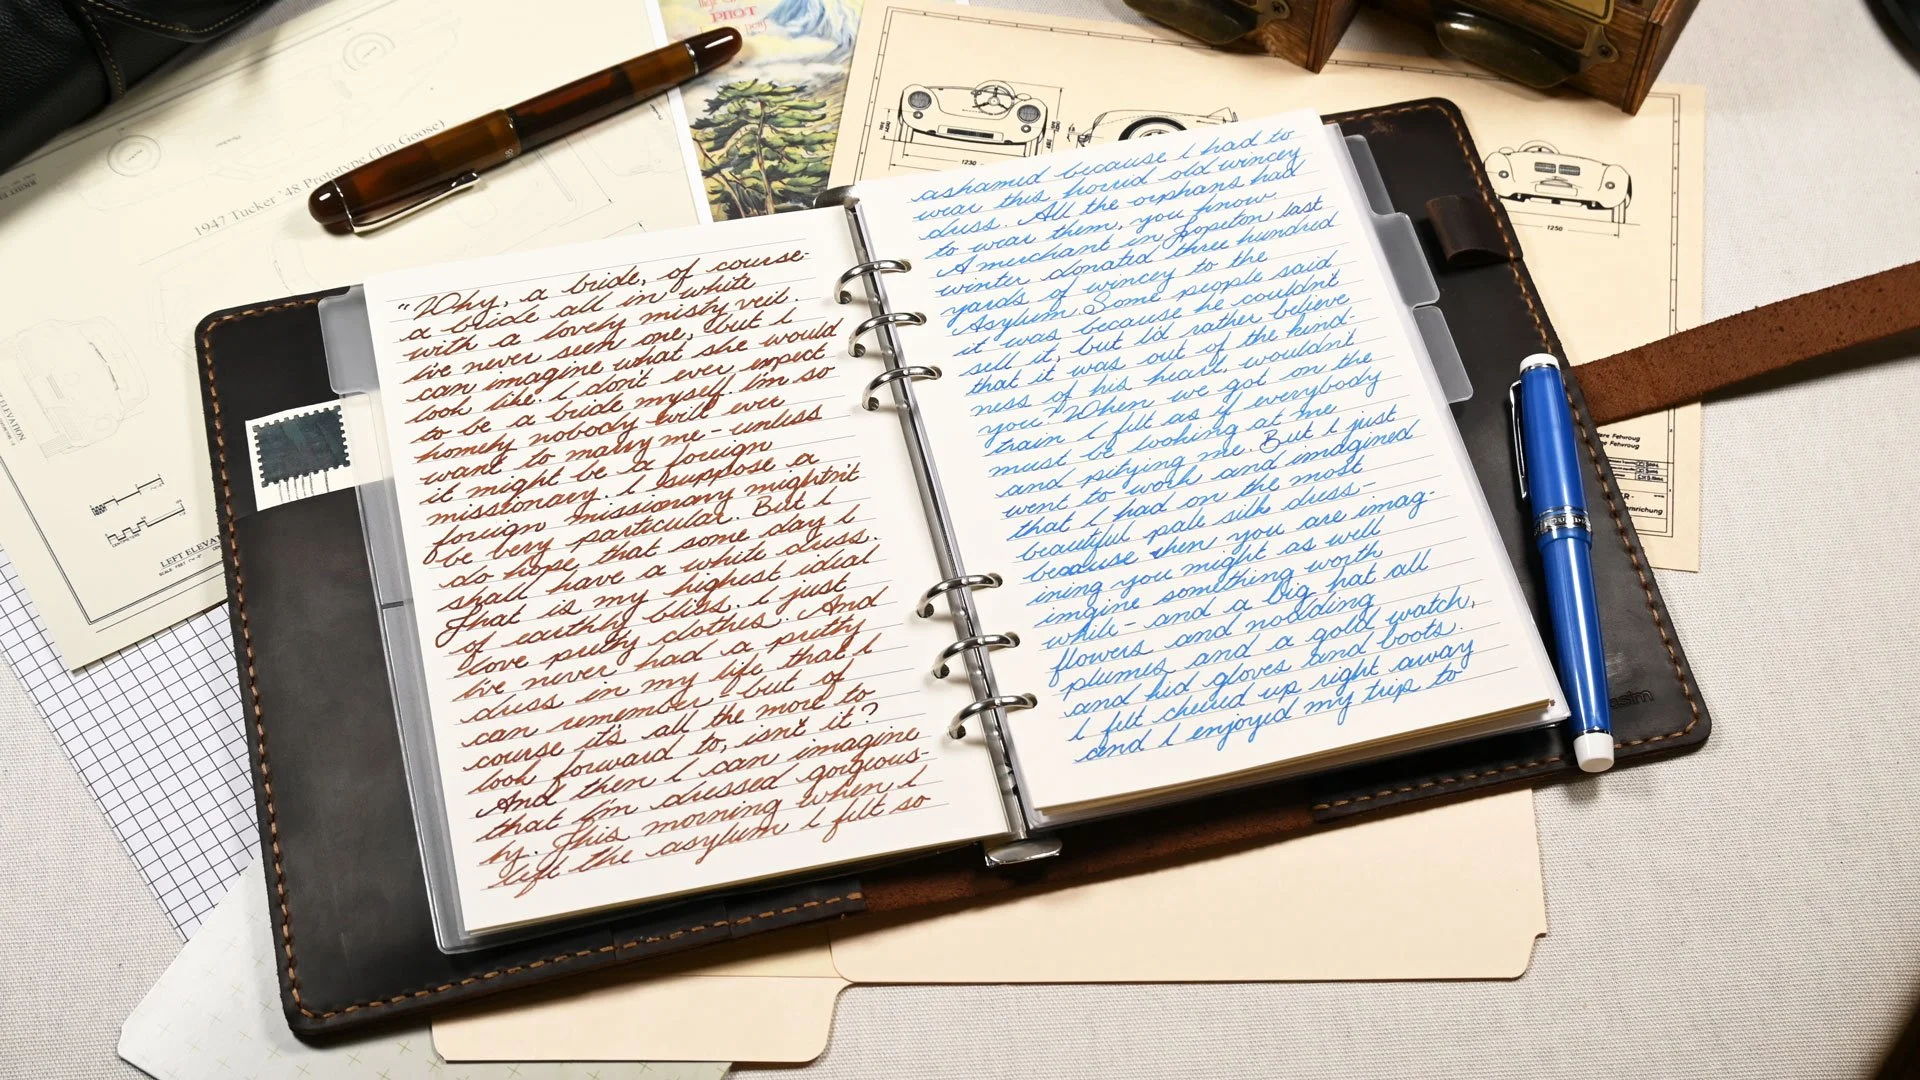 PILOT
1947 Tucker '48 Prototype (Tin Goose)
1230
1250
LEFT ELEVATION
"Why, a bride, of course-
a bride all in white
with a lovely misty veil.
I've never seen one, but I
can imagine what she would
look like. I don't ever expect
to be a bride myself. I'm so
homely nobody will ever
want to marry me - unless
it might be a foreign
missionary. I suppose a
foreign missionary mightn't
be very particular. But I
do hope that some day I
shall have a white dress.
That is my highest ideal
of earthly bliss. I just
love pretty clothes. And
I've never had a pretty
dress in my life that I
can remember - but of
course it's all the more to
look forward to, isn't it?
And then I can imagine
that I'm dressed gorgeous-
ly. This morning when I
left the asylum I felt so
ashamed because I had to
wear this horrid old wincey
dress. All the orphans had
to wear them, you know.
A merchant in Hopeton last
winter donated three hundred
yards of wincey to the
Asylum. Some people said
it was because he couldn't
sell it, but I'd rather believe
that it was out of the kind-
ness of his heart, wouldn't
you? When we got on the
train I felt as if everybody
must be looking at me
and pitying me. But I just
went to work and imagined
that I had on the most
beautiful pale silk dress -
because when you are imag-
ining you might as well
imagine something worth
while - and a big hat all
flowers and nodding
plumes and a gold watch,
and kid gloves and boots.
I felt cheered up right away
and I enjoyed my trip to